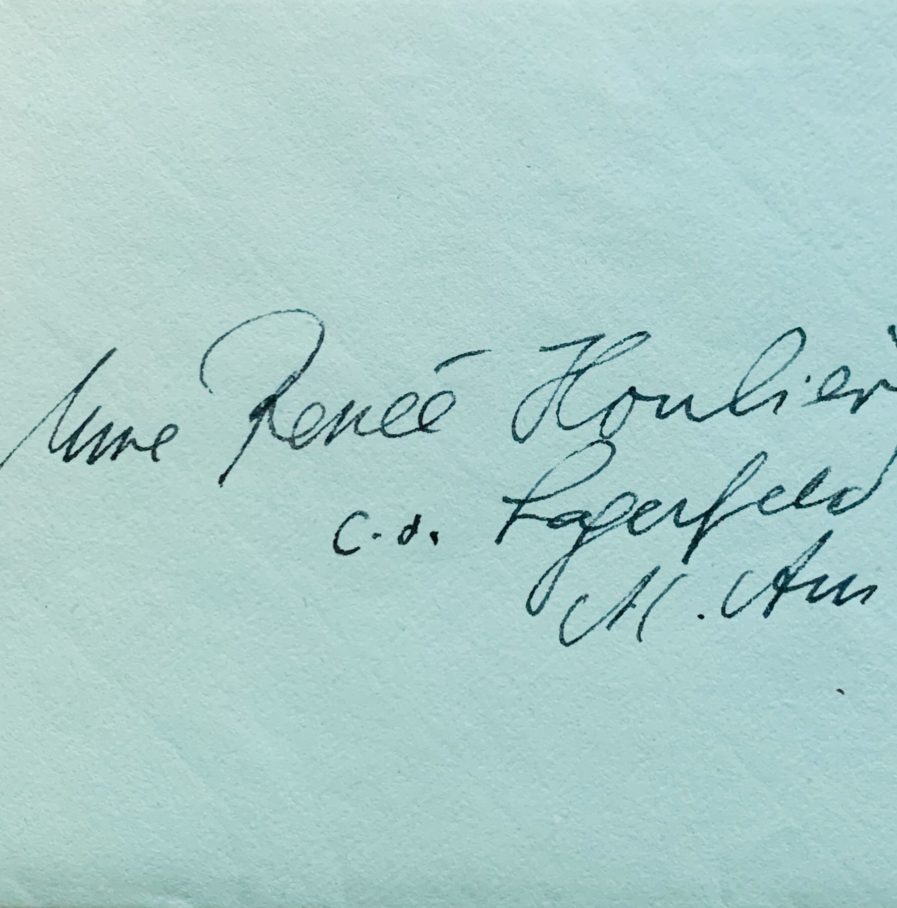 Mme Renée Houlier
c.o. Lagerfeld